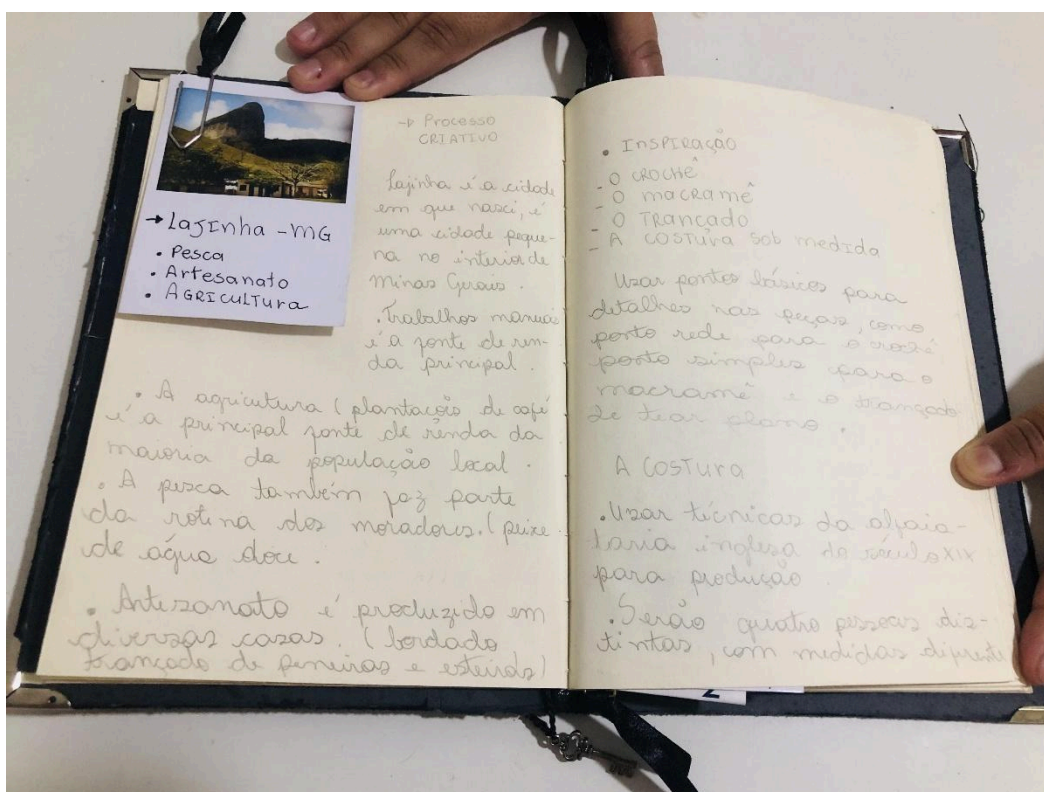 → LAJINHA - MG
• Pesca
• Artesanato
• AGRICULTURA
→ Processo
CRIATIVO
Lajinha é a cidade
em que nasci, é
uma cidade peque-
na no interior de
Minas Gerais.
. Trabalhos manuais
é a fonte de ren-
da principal.
. A agricutura (plantação de café
é a principal fonte de renda da
maioria da população local.
. A pesca também faz parte
da rotina dos moradores. (peixe
de água doce.
. Artezanato é produzido em
diversas casas. (bordado
trançado de peneiras e esteiras)
• INSPIRAÇÃO
- O CROCHÊ
- O MACRAMÊ
- O TRANÇADO
- A COSTURA SOB MEDIDA
Usar pontos básicos para
detalhes nas peças, como
ponto rede para o crochê
ponto simples para o
macramê e o trançado
de tear plano.
A COSTURA
. Usar técnicas da alfaia-
taria inglesa do século XIX
para produção.
. Serão quatro pessoas dis-
tintas, com medidas diferente
2